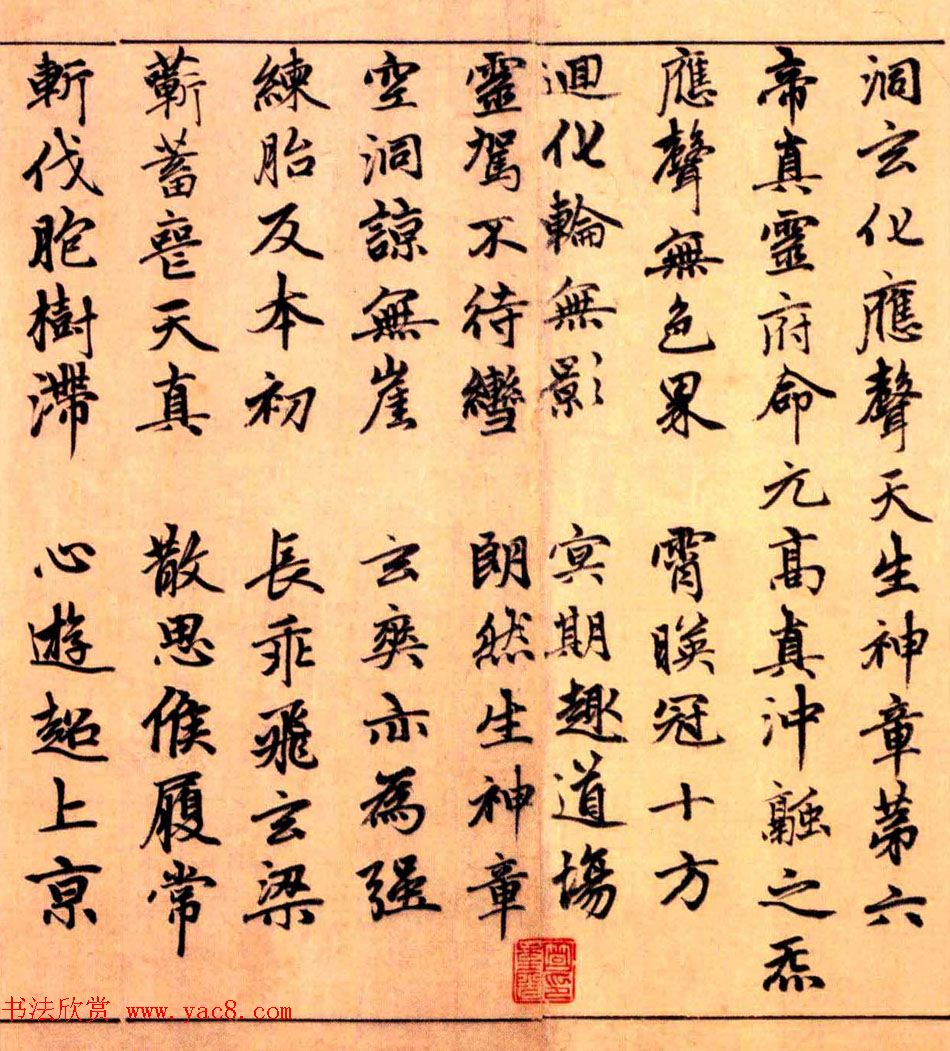 洞玄化應聲天生神章第六
帝真靈府命元高真沖融之炁
應聲無色界 霄暎冠十方
迴化輪無影 冥期趣道場
靈駕不待轡 朗然生神章
空洞諒無崖 玄爽亦為強
練胎反本初 長乖飛玄梁
蘄蓄喪天真 散思候履常
斬伐胞樹滯 心遊超上京
书法欣赏 www.yac8.com